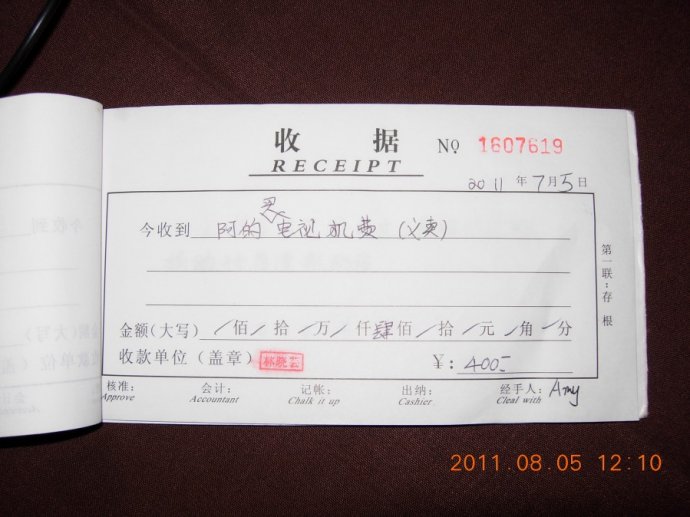 收 据 NO 1607619
RECEIPT
2011 年 7 月 5 日
灵
今收到 阿的电视机费 (义卖)
第一联:存 根
金额(大写) / 佰 / 拾 / 万 / 仟 肆 佰 / 拾 / 元 / 角 / 分
收款单位(盖章) 林晓芸 ¥: 400-
核准: 会计: 记帐: 出纳: 经手人: Amy
Approve Accountant Chalk it up Cashier Cleal with
2011.08.05 12:10